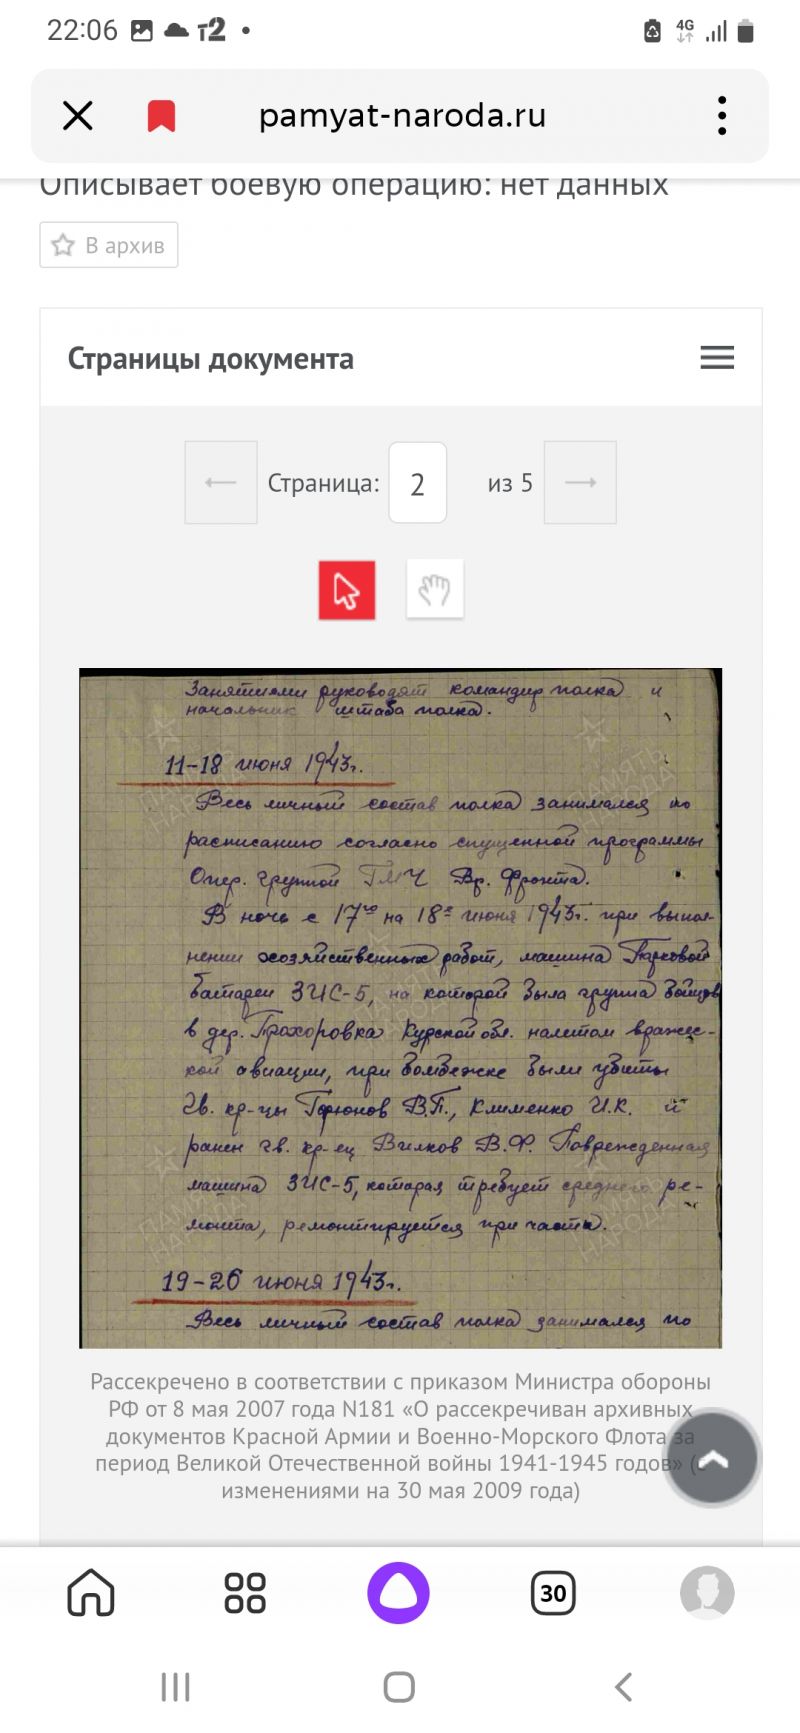 22:06 т2 4G
pamyat-naroda.ru
Описывает боевую операцию: нет данных
В архив
Страницы документа
Страница: 2 из 5
Занятиями руководят командир полка и
начальник штаба полка.
11-18 июня 1943г.
Весь личный состав полка занимался по
расписанию согласно спущенной программы
Опер. группой ГМЧ Вр. Фронта.
В ночь с 17го на 18е июня 1943г. при выпол-
нении хозяйственных работ, машина Парковой
батареи ЗИС-5, на которой была группа бойцов
в дер. Прохоровка Курской обл. налетом вражес-
кой авиации, при бомбежке были убиты
Гв. кр-цы Горюнов В.П., Клименко И.К. и
ранен гв. кр-ец Вилков В.Ф. Поврежденная
машина ЗИС-5, которая требует среднего ре-
монта, ремонтируется при части.
19-26 июня 1943г.
Весь личный состав полка занимался по
Рассекречено в соответствии с приказом Министра обороны
РФ от 8 мая 2007 года N181 «О рассекречиван архивных
документов Красной Армии и Военно-Морского Флота за
период Великой Отечественной войны 1941-1945 годов» (с
изменениями на 30 мая 2009 года)
30